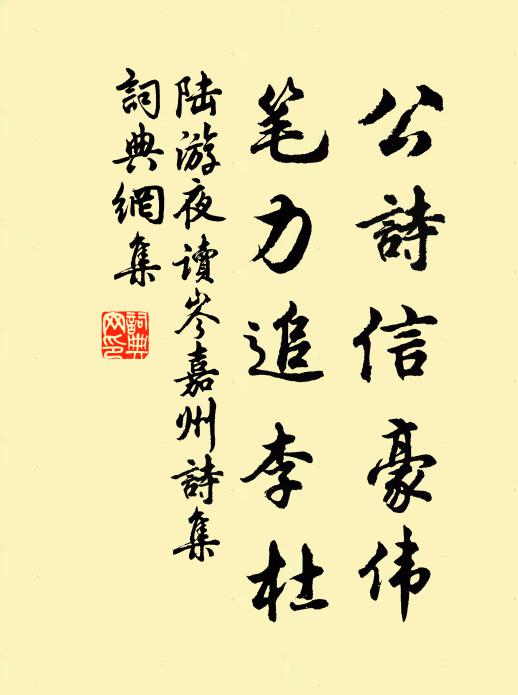 公詩信豪伟
笔力追李杜
陆游夜讀岑嘉州詩集
詞典網集
詞典
网印